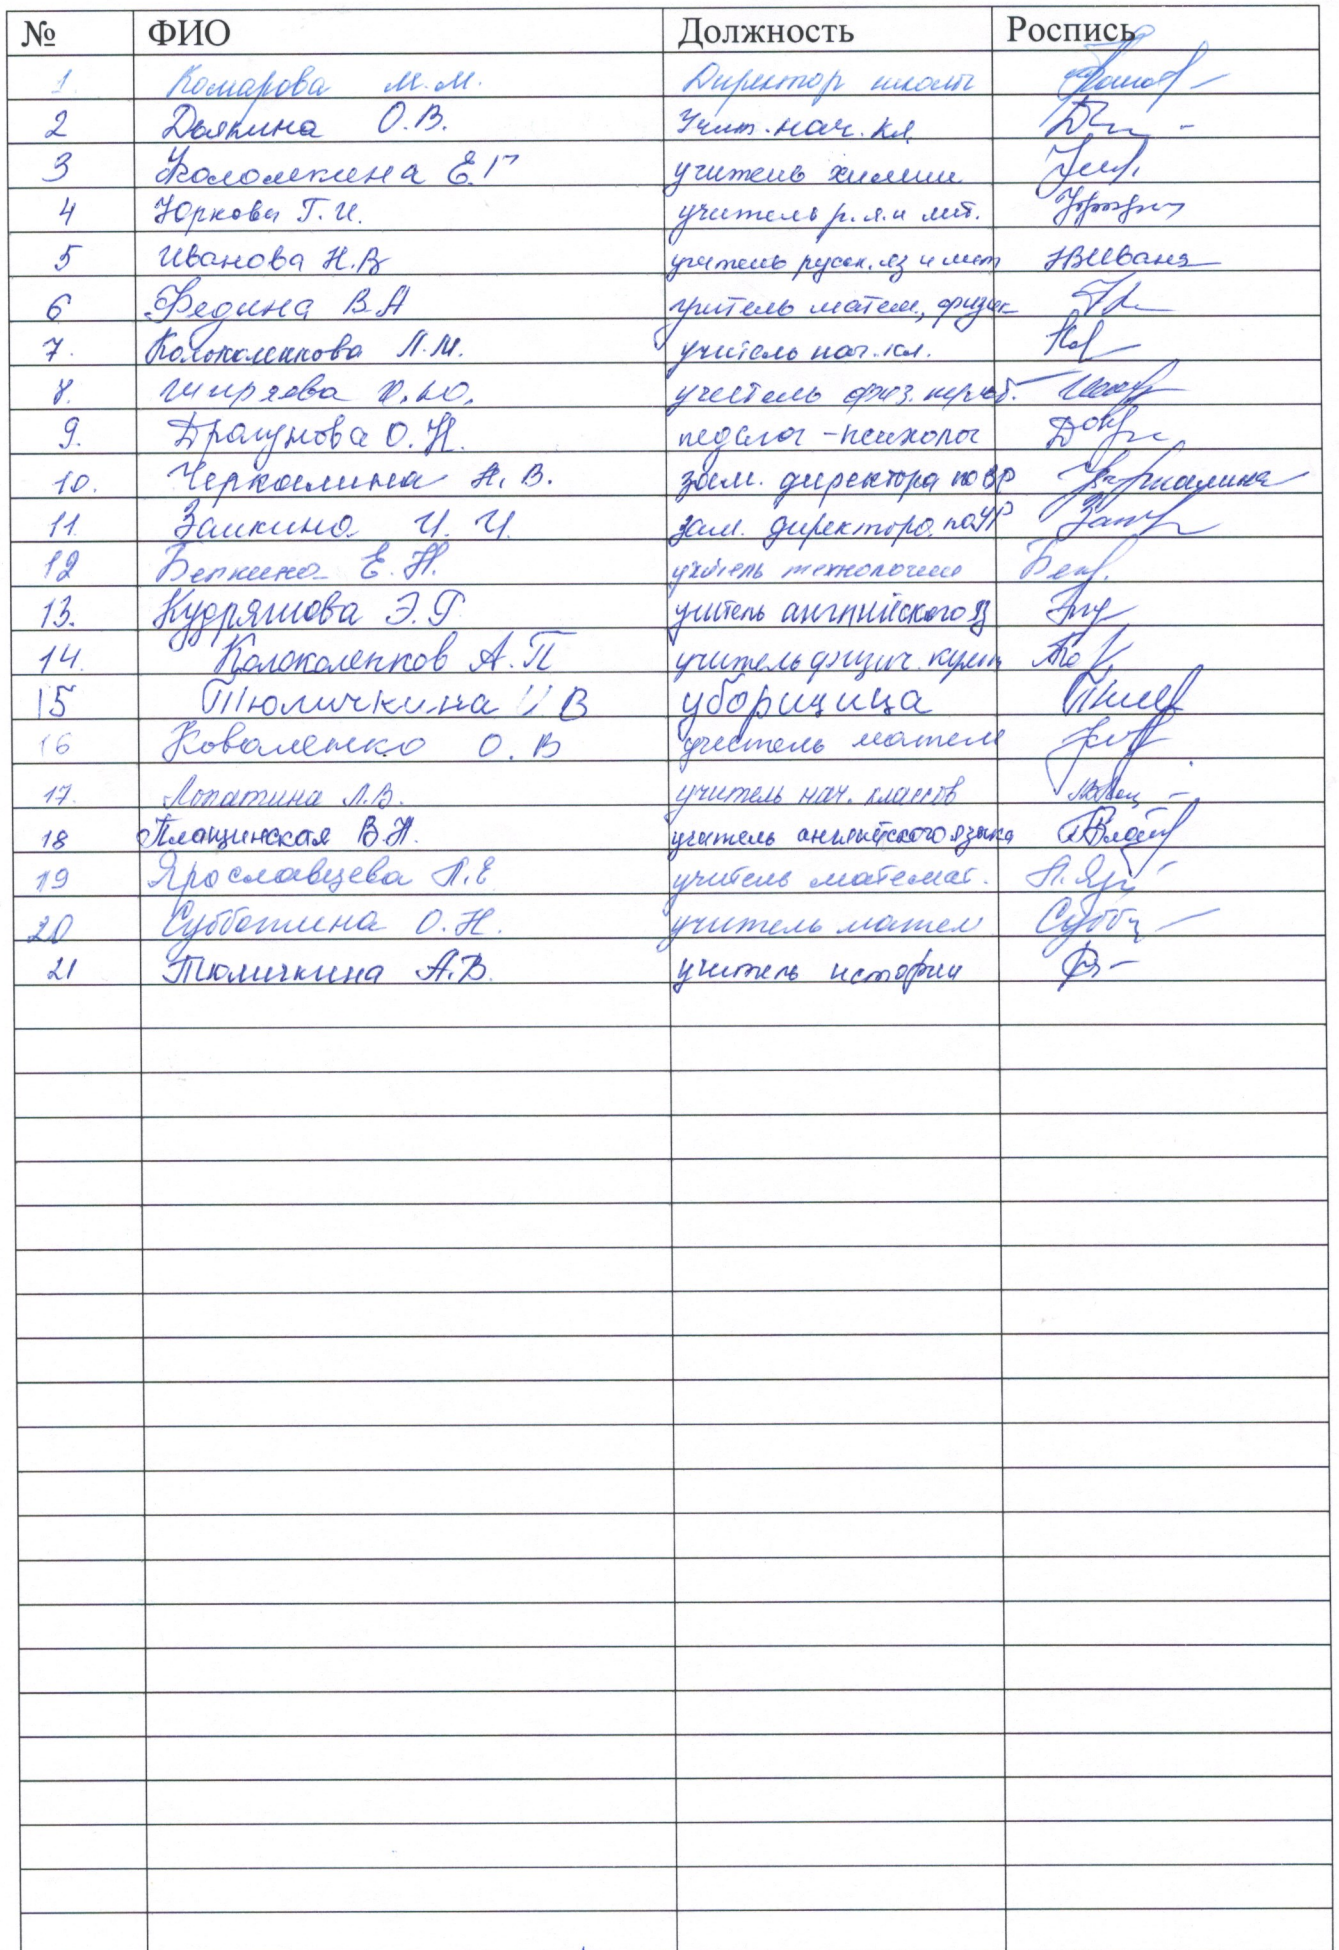 № ФИО Должность Роспись
1. Комарова М.М. Директор школы
2 Дьякина О.В. Учит. нач. кл.
3 Коломкина Е.Г учитель химии
4 Юркова Г.И. учитель р.я. и лит.
5 Иванова Н.В учитель русск. яз и лит НВИвана
6 Федина В.А учитель матем., физик
7. Колоколенкова Л.М. учитель нач. кл.
8. Ширяева учитель физ.
9. Драгунова О.Н. педагог-психолог
10. Черкалина Н.В. зам. директора по ВР
11. Заикина И.И. зам. директора по УР
12 Белкина Е.Н. учитель технологии
13. Кудряшова Э.Г учитель английского яз
14. Колоколенков А.П учитель физич. культ
15 Тюличкина И В уборщица
16 Коваленко О.В учитель матем
17. Лопатина Л.В. учитель нач. классов
18 Плащинская В.Н. учитель английского языка
19 Ярославцева Л.Е учитель математ.
20 Субботина О.Н. учитель матем
21 Тюличкина А.В. учитель истории